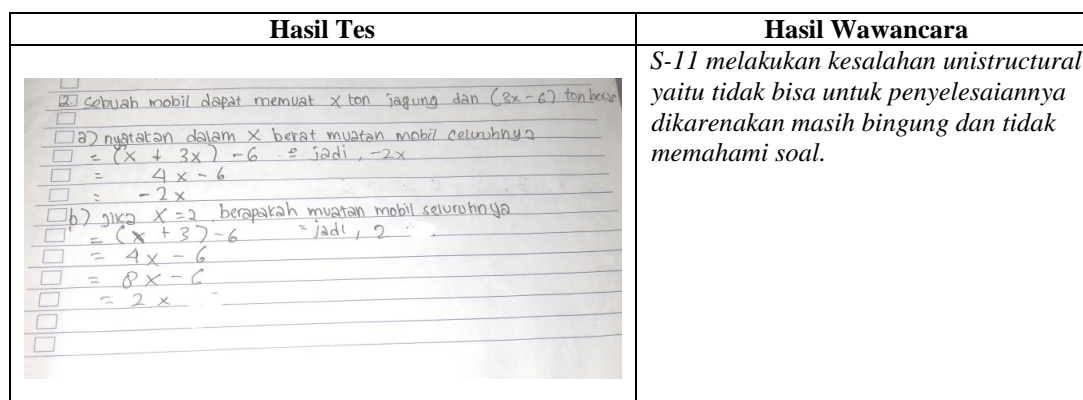 Hasil Tes
Hasil Wawancara
2. Sebuah mobil dapat memuat x ton jagung dan (3x - 6) ton beras
a) nyatakan dalam x berat muatan mobil celuruhnya
= (x + 3x) - 6 = jadi, -2x
= 4x - 6
= -2x
b) jika x = 2 berapakah muatan mobil seluruhnya
= (x + 3) - 6 = jadi, 2
= 4x - 6
= 8x - 6
= 2x
S-11 melakukan kesalahan unistructural
yaitu tidak bisa untuk penyelesaiannya
dikarenakan masih bingung dan tidak
memahami soal.